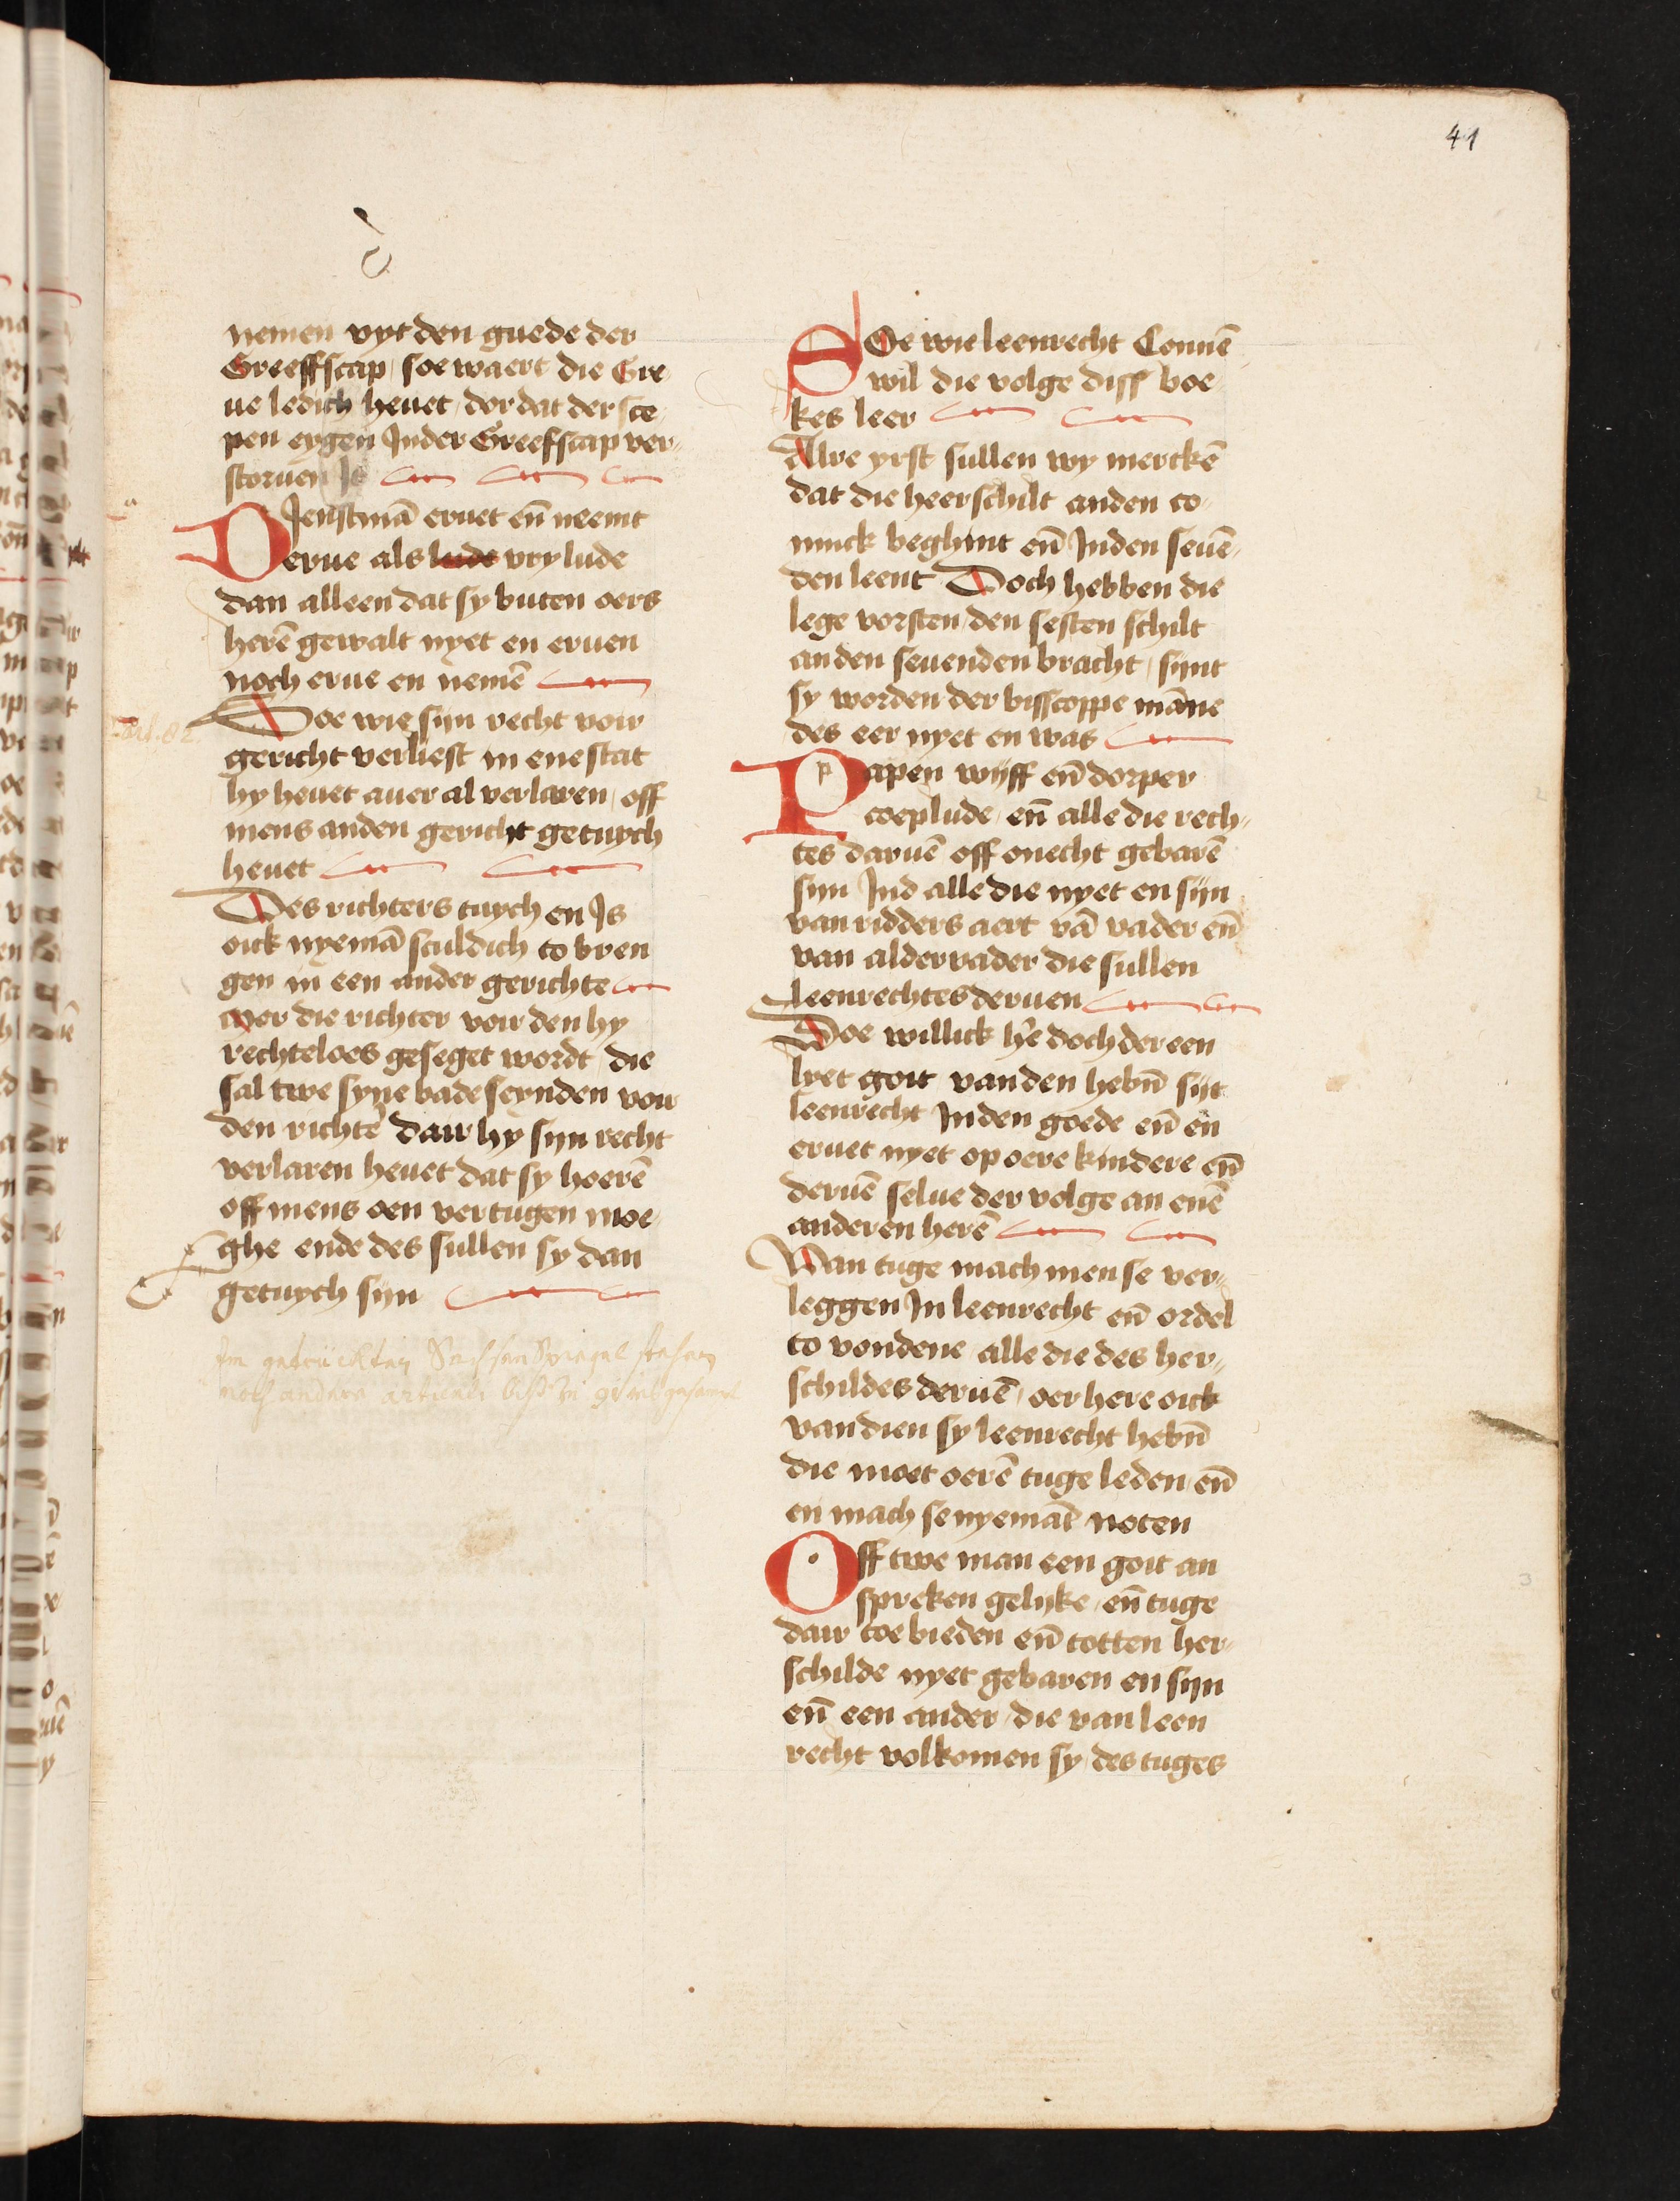 41
nemen vyt den guede der
Greeffscap soe waert die Gre
ue ledich heuet dor dat der sce
pen eygen Inder Greefscap ver
storuen Is
DJenstmā eruet en̄ neemt
erue als lude vry lude
dan alleen dat sy buten oers
herē gewalt nyet en eruen
noch erue en nemē
Soe wie sijn recht voir
gericht verliest in ene stat
hy heuet auer al verlaren off
mens anden gericht getuych
heuet
Des richters tuych en Is
oick nyemā sculdich to bren
gen in een ander gerichte
mer die richter voir den hy
rechteloes geseget wordt die
sal twe syne bade seynden voir
den richtē dair hy sijn recht
verlaren heuet dat sy hoerē
off mens oen vertugen moe
ghe ende des sullen sy dan
getuych sijn
Im getruckten Sachsen Spiegel stehen
noch andere articul
SOe wie leenrecht Connē
wil die volge diss boe
kes leer
Alre yrst sullen wy merckē
dat die heerschilt anden co
ninck beghint en̄ Inden seuē
den leent Doch hebben die
lege vorsten den sesten schilt
anden seuenden bracht sijnt
sy worden der bisscoppe mānne
des eer nyet en was
Papen wijff en̄ dorper
coeplude en̄ alle die rech
tes daruē off onecht gebarē
sijn Ind alle die nyet en sijn
van ridders aert vā vader en̄
van aldervader die sullen
leenrechtes deruen
Soe willick hē doch der een
lyet goit vanden hebn̄ sijt
leenrecht Inden goede en̄ en
eruet nyet op oere kindere en̄
deruē selue der volge an enē
anderen herē
Van tuge mach men se ver
leggen In leenrecht en̄ ordel
to vondene alle die des her
schildes deruē oer here oick
van dien sy leenrecht hebn̄
die moet oerē tuge leden en̄
en mach se nyemāt noten
Off twe man een goit an
spreken gelijke en̄ tuge
dair toe bieden en̄ totten her
schilde nyet gebaren en sijn
en̄ een ander die van leen
recht volkomen sy des tuges